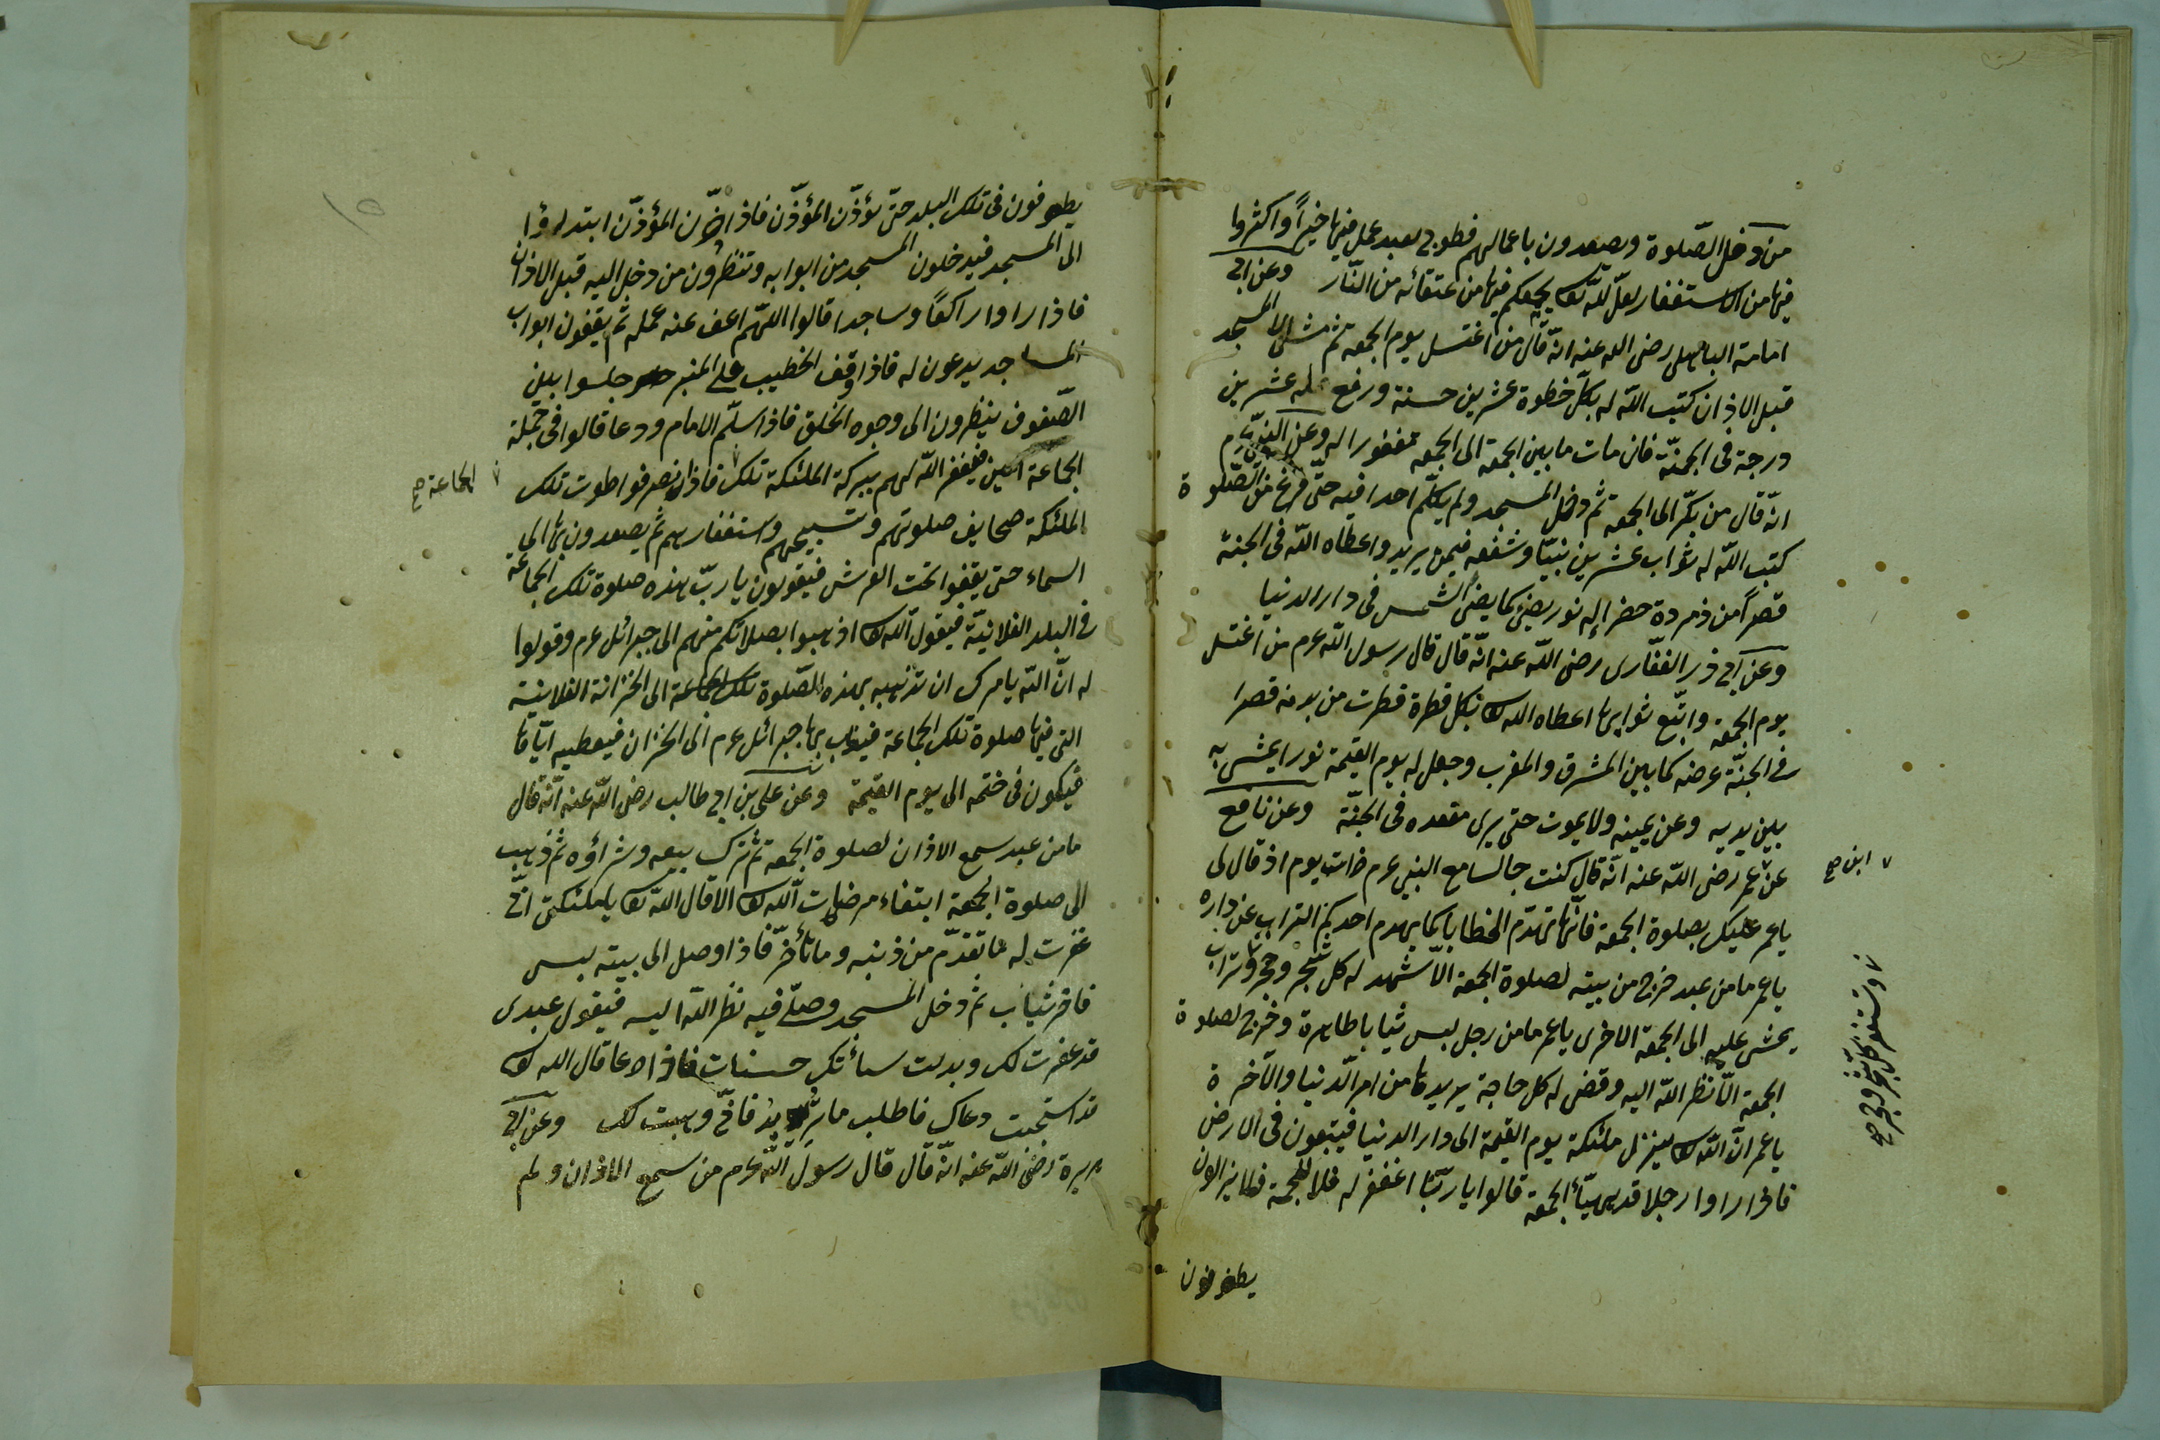 من دخل الصّلوة ويصعدون باعمالهم فطوبى لعبد عمل فيها خيراً واكثروا
فيها من الاستغفار لعلّ اللّه تعا يجعلكم فيها من عتقائه من النّار وعن ابى
امامة الباهلى رضى الله عنه انّه قال من اغتسل يوم الجمعه ثم مشى الى المسجد
قبل الاذان كتب اللّه له بكلّ خطوة عشرين حسنة ورفع له عشرين
درجة فى الجنّة فان مات ما بين الجمعة الى الجمعه مغفورا له وعن النبىّ عم
انّه قال من بكّر الى الجمعه ثم دخل المسجد ولم يكلّم احدا فيه حتّى فرغ من الصّلوة
كتب اللّه له ثواب عشرين نبيّا وشفعه فيمن يريد واعطاه اللّه فى الجنة
قصراً من ذمردة خضرا له نور يضئ كما يضئ الشمس فى دار الدنيا
وعن ابى ذر الغفّارى رضى اللّه عنه انّه قال قال رسول اللّه عم من اغتسل
يوم الجمعه واتبع ثوابها اعطاه الله تعا بكل قطرة قطرت من بدنه قصرا
فى الجنّة عرضه كما بين المشرق والمغرب وجعل له يوم القيمة نورا يمشى به
بين يديه وعن يمينه ولا يموت حتى يرى مقعده فى الجنّة وعن نافع
عن عمر رضى اللّه عنه انّه قال كنت جالسا مع النبى عم ذات يوم اذ قال لى
ابن صح
يا عمر عليك بصلوة الجمعه فانّها تهدّم الخطايا كما يهدم احدكم التراب عن داره
يا عمر ما من عبد خرج من بيته لصلوة الجمعة الّا شهد له كل شجر وحجر وتراب
يمشى عليه الى الجمعة الاخرى يا عمر ما من رجل لبس ثيابا طاهرة وخرج لصلوة
ويستغفر كل شجر وحجر صح
الجمعه الّا نظر اللّه اليه وقضى له كل حاجة يريدها من امر الدّنيا والآخرة
يا عمر انّ اللّه تعا ينزل ملئكة يوم القيمة الى دار الدنيا فيتبعون فى الارض
فاذا راوا رجلا قد تهيّأ الجمعة قالوا يا ربّنا اغفر له فلا يزالون
يطوفون
يطوفون فى تلك البلد حتّى يؤذّن المؤذّن فاذا اذّن المؤذّن ابتدرؤا
الى المسجد فيدخلون المسجد من ابوابه وتنظرون من دخل اليه قبل الاذان
فاذا راوا راكعًا وساجدا قالوا اللّهم اعف عنه عمله ثم يقفون ابواب
المساجد يدعون له فاذا وقف الخطيب على المنبر جلسوا بين
الصّفوف ينظرون الى وجوه الخلق فاذا سلّم الامام ودعا قالوا فى جملة
الجماعة آمين فيغفر اللّه لهم ببركة الملئكة تلك فاذا انصرفوا طوت تلك
الجماعة صح
الملئكة صحايف صلوتهم وتسبيحهم واستغفارهم ثم يصعدون بها الى
السماء حتى يقفوا تحت العرش فيقولون يا ربّ هذه صلوة تلك الجماعة
فى البلد الفلانيّة فيقول اللّه تعا اذهبوا بصلاتكم منهم الى جبرائل عم وقولوا
له انّ اللّه يامرك ان تذهب بهذه الصّلوة تلك الجماعة الى الخزانة الفلانية
التى فيها صلوة تلك الجماعة فيذهب بها جبرائل عم الى الخزان فيعطيه ايّاها
فيكون فى ختمه الى يوم القيمة وعن على بن ابى طالب رضى اللّه عنه انّه قال
ما من عبد سمع الاذان لصلوة الجمعه ثم ترك بيعه وشراؤه ثم ذهب
الى صلوة الجمعة ابتغاء مرضات اللّه تعا الا قال اللّه تعا يا ملئكتى انّى
غفرت له ما تقدّم من ذنبه وما تأخّر فاذا وصل الى بيته لبس
فاخر ثياب ثم دخل المسجد وصلّى فيه نظر اللّه اليه فيقول عبدى
قد غفرت لك وبدلت سيأتك حسنات فاذا دعا قال الله تعا
قد استجبت دعاك فاطلب ما تريد فانّى وهبت لك وعن ابى
هريرة رضى اللّه عنه انّه قال قال رسول اللّه عم من سمع الاذان ولم